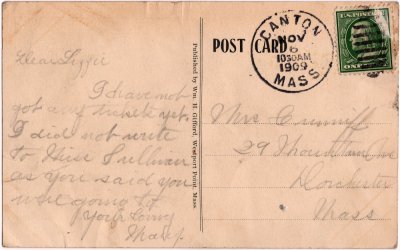 Dear Lizzie
I have not
got any tickets yet.
I did not write
to Miss Sullivan
as you said you
were going to
Your Loving
Mary.
Published by Wm. H. Gifford, Westport Point, Mass.
POST CARD
CANTON
NOV
6
1030AM
1909
MASS.
U.S. POSTAGE
Mrs Cunniff
29
Dorchester
Mass